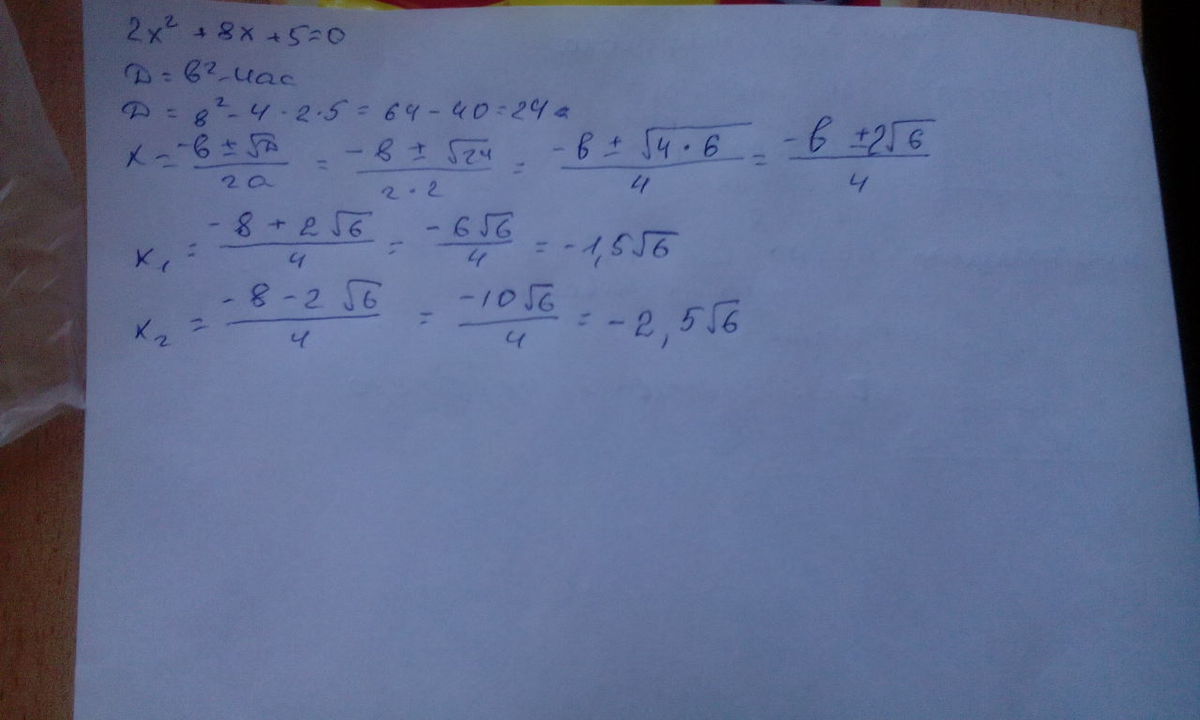 2x² + 8x + 5 = 0
D = b² - 4ac
D = 8² - 4 · 2 · 5 = 64 - 40 = 24
x = (-b ± √D)/(2a) = (-b ± √24)/(2 · 2) = (-b ± √(4 · 6))/4 = (-b ± 2√6)/4
x₁ = (-8 + 2√6)/4 = (-6√6)/4 = -1,5√6
x₂ = (-8 - 2√6)/4 = (-10√6)/4 = -2,5√6